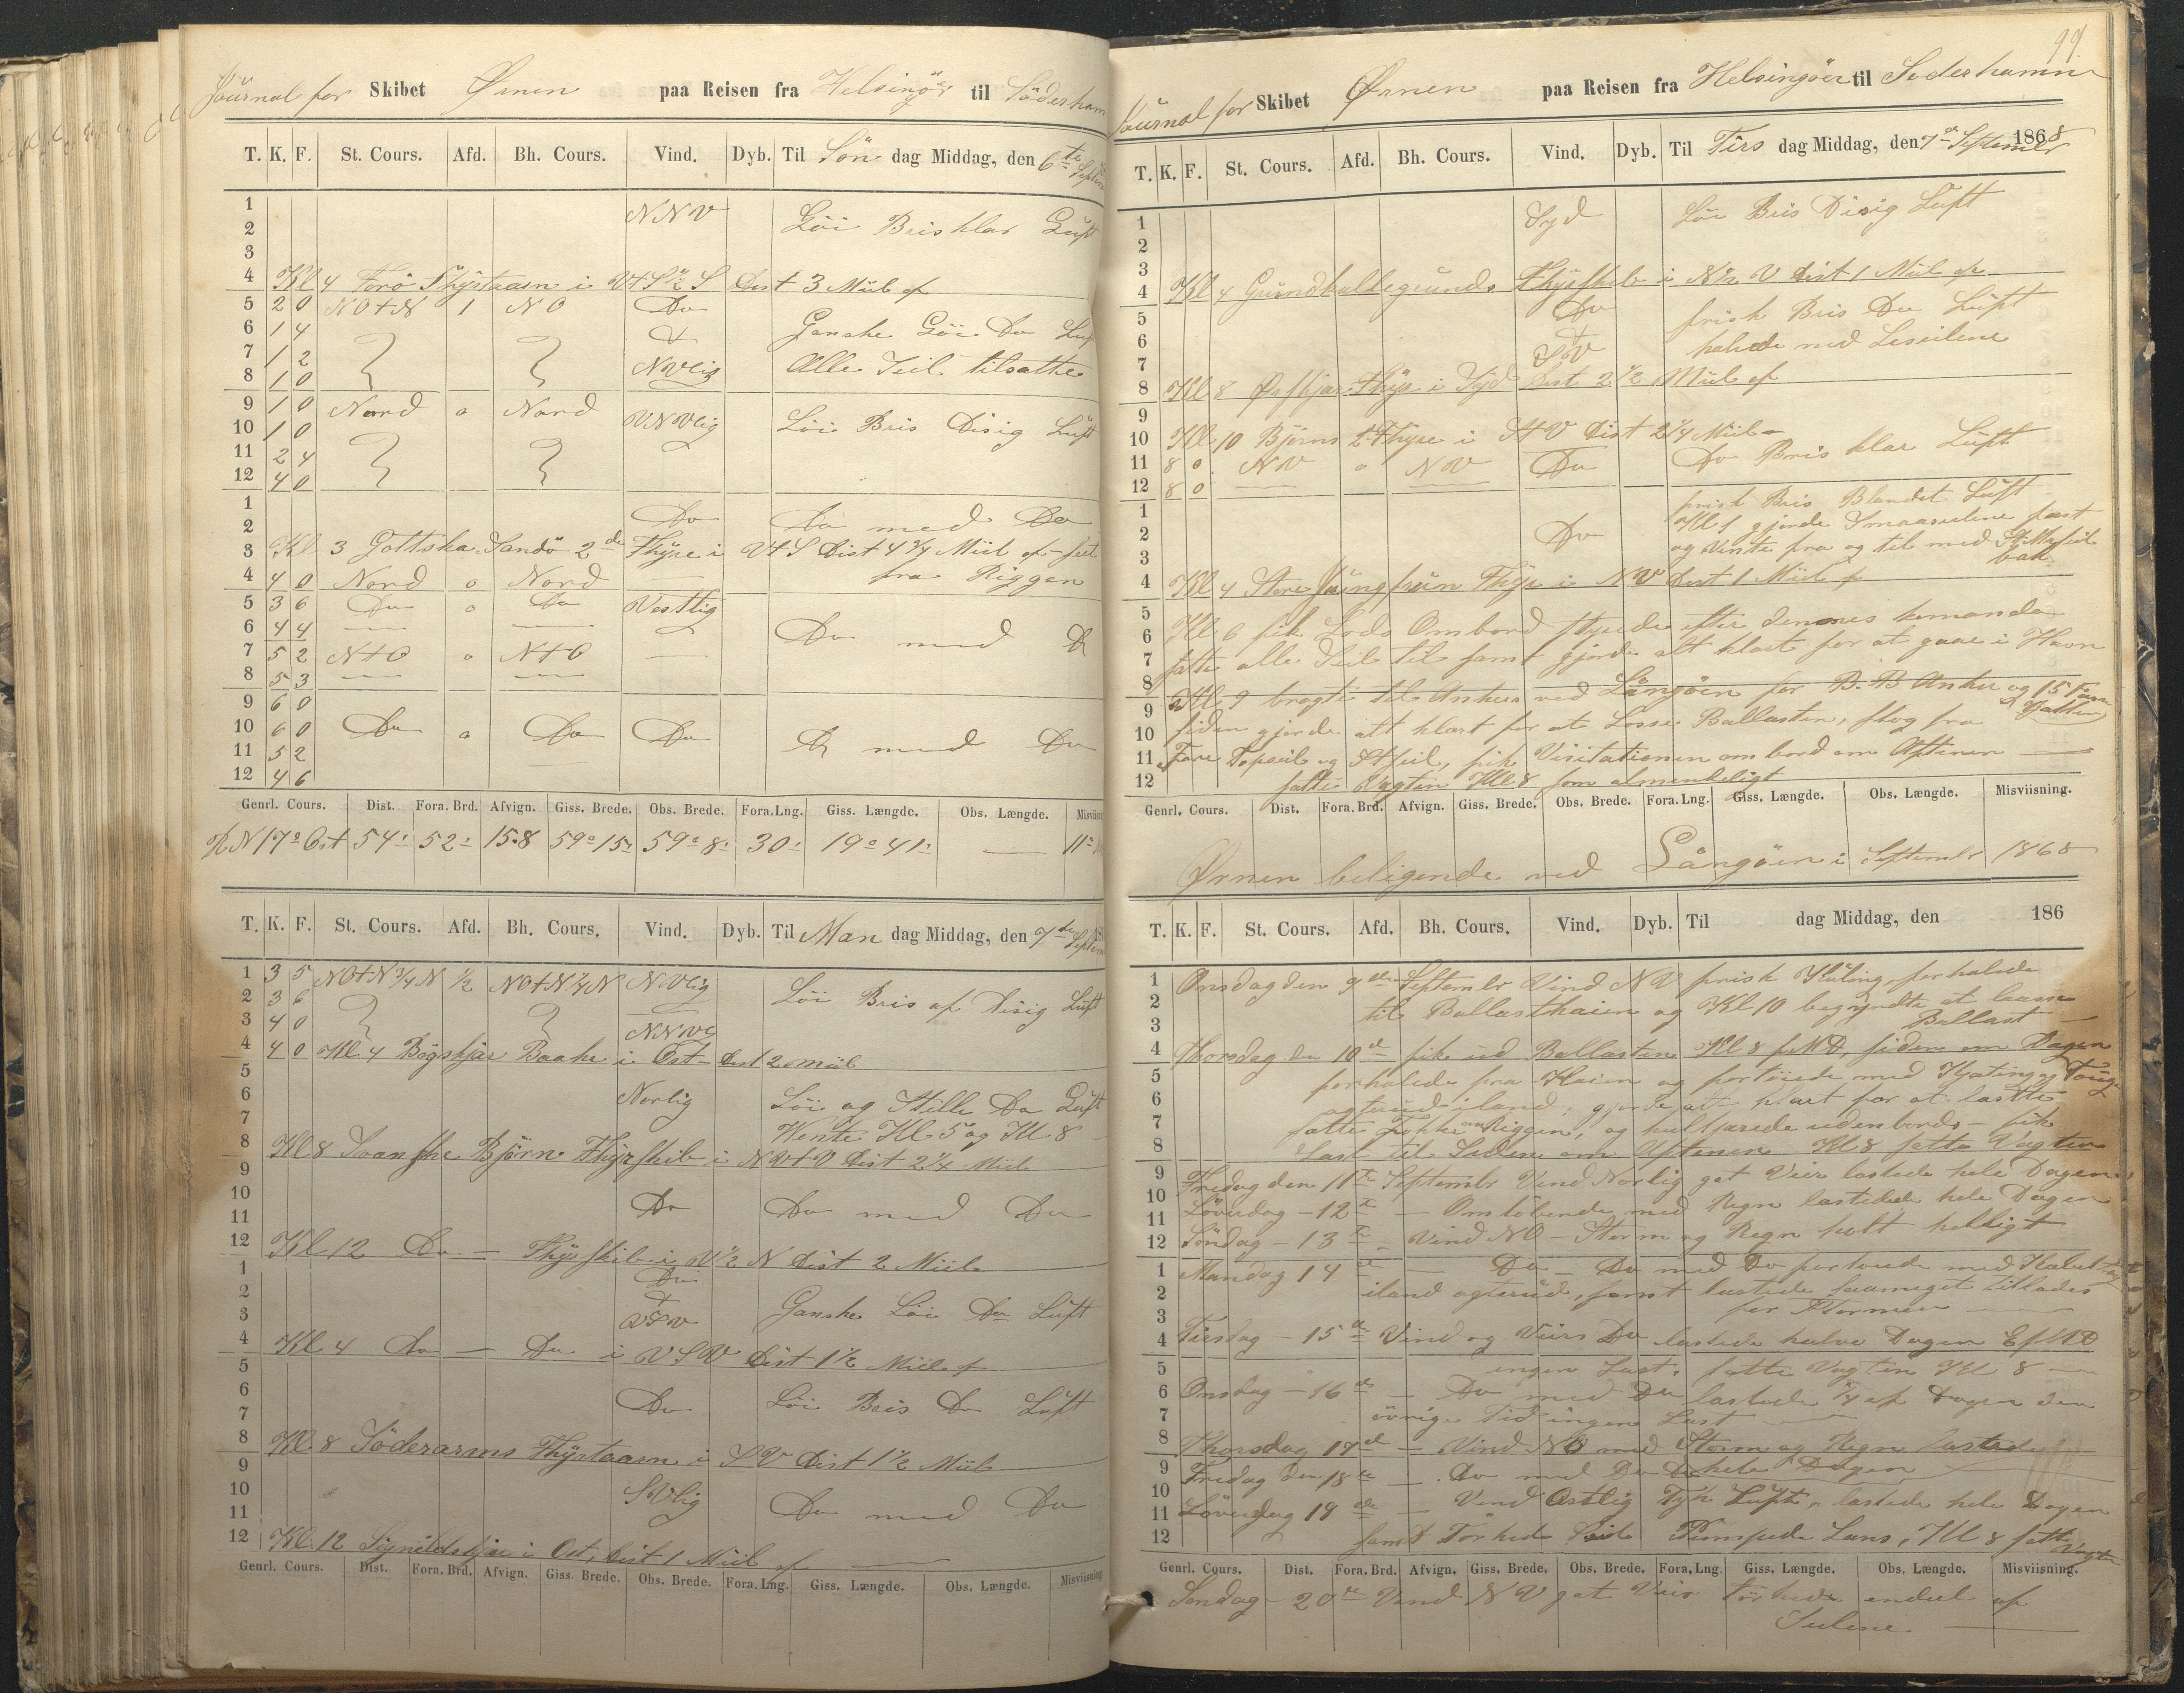 Journal for Skibet Ørnen paa Reisen fra Helsingör til Söderham
T. K. F. St. Cours. Afd. Bh. Cours. Vind. Dyb. Til Sön dag Middag, den 6te Septem
1 NNV Löi Bris klar Luft
2
3
4 Kl 4 Forö Fhÿrtaarn i V+S ½ S Dist 3 Miil af
5 2 0 NO+N 1 NO Do
6 1 4 Ganske Löi Do Luf
7 1 2 NVlig Alle Seil tilsatte
8 1 0
9 1 0 Nord o Nord
10 1 0 VNVlig Löi Bris Disig Luft
11 2 4
12 4 0
1 Do Do med Do
2
3 Kl 3 Gottska Sandö 2de Fhÿre i V+S Dist 4¾ Miil af
4 4 0 Nord o Nord fra Riggen
5 3 6 Do o Do Vestlig
6 4 4 Do med D
7 5 2 N+O o N+O
8 5 3
9 6 0
10 6 0 Do o Do Do D med Do
11 5 2
12 4 6
Genrl. Cours. Dist. Fora. Brd. Afvign. Giss. Brede. Obs. Brede. Fora. Lng. Giss. Længde. Obs. Længde. Misviisn
N 17° Ost 54' 52' 15.8 59° 15' 59° 8' 30' 19° 41' — 11°
T. K. F. St. Cours. Afd. Bh. Cours. Vind. Dyb. Til Man dag Middag, den 7de Septem
1 3 5 NO+N ¾ N ½ NO+N ¼ N NVlig
2 3 6 Löi Bris af Disig Luft
3 4 0 NNV
4 4 0 Kl 4 Bogskjær Baake i Ost Dist 2 Miil
5
6 Norlig Löi og Stille Do Luft
7 Wente Kl 5 og Kl 8
8 Kl 8 Svanske Björn Fhÿrskib i NV+V Dist 2¼ Miil
9
10 Do Do med Do
11
12 Kl 12 Do — Fhÿrskib i V ½ N Dist 2 Miil
1 Do
2
3 VSV Ganske Löi Do Luft
4 Kl 4 Do — Do i VSV Dist 1½ Miil af
5
6 Do Löi Bris Do Luft
7
8 Kl 8 Söderarms Fhÿrtaarn i SV Dist 1½ Miil
9
10 SVlig Do med Do
11
12 Kl 12 Signildskjær i Ost, Dist 1 Miil af
Genrl. Cours. Dist. Fora. Brd. Afvign. Giss. Brede. Obs. Brede. Fora. Lng. Giss. Længde. Obs. Længde. Misviisning.
99.
Journal for Skibet Ørnen paa Reisen fra Helsingöer til Soderhamn
T. K. F. St. Cours. Afd. Bh. Cours. Vind. Dyb. Til Tirs dag Middag, den 7de Septembr 1868
1 Syd Löi Bris Disig Luft
2
3
4 Kl 4 Grundkallegrunds Fhÿrskib i N ½ V Dist 1 Miil af
5 Do frisk Bris Do Luft
6 halede ned Leseilene
7 SV
8 Kl 8 Ørskjær Fhÿr i Syd Dist 2½ Miil af
9
10 Kl 10 Björns Fhÿre i StV Dist 2¼ Miil
11 8 0 NV o NV Do Do Bris klar Luft
12 8 0
1 frisk Bris Blandet Luft
2 Do Kl 1 gjorde Smaaseilene fast
3 og Vente fra og til med Storseil bak
4 Kl 4 Store Jungfruen Fhÿr i NV Dist 1 Miil af
5
6 Kl 6 fik Lods Ombord styrede efter dennes komando
7 satte alle Seil til samt gjorde alt klart for at gaae i Havn
8
9 Kl 9 bragte til Ankers ved Långöen for B.B Anker og 15 Favn Kjetting
10 siden gjorde alt klart for at Losse Ballasten, slog fra
11 Fore Topseil og Stseil, fik Visitationen ombord om Aftenen
12 satte Vagten Kl 8 som almindeligt
Genrl. Cours. Dist. Fora. Brd. Afvign. Giss. Brede. Obs. Brede. Fora. Lng. Giss. Længde. Obs. Længde. Misviisning.
Ørnen beligende ved Långöen i Septembr 1868
T. K. F. St. Cours. Afd. Bh. Cours. Vind. Dyb. Til dag Middag, den 186
1 Onsdag den 9de Septembr Vind NV frisk Kuling, forhalede
2 til Ballasthaien og Kl 10 begyndte at lasse
3 Ballast
4 Thorsdag den 10de fik ud Ballasten Kl 8 f.Md, siden om Dagen
5 forhalede fra Kaien og fortöiede med Kjæting og Toug
6 agterud iland, gjorde alt klart for at lastte
7 satte Fokke Riggen, og udenbords – fik
8 Last til Siden om Aftenen Kl 8 satte Vagten
9 Fredag den 11te Septembr Vind Norlig got Veir lastede hele Dagen
10 Löverdag – 12te – Omlöbende med Regn lastede hele Dagen
11
12 Söndag – 13te – Vind NO – Storm og Regn helt helligt
1 Mandag 14de – Do – Do med Do fortöiede med Kabeltoug
2 iland agterud, samt lastede saameget tillodes
3 for Stormen
4 Tirsdag – 15de Vind og Veirs Do lastede halve Dagen EfMd
5 ingen Last, satte Vagten Kl 8
6 Onsdag – 16de – Do med Do lastede ¼ af Dagen den
7 övrige Tid ingen Last
8 Thorsdag 17de – Vind NO med Storm og Regn lastede
9 Fredag den 18de – Do med Do hele Dagen
10
11 Löverdag 19de – Vind Ostlig Tyk Luft, lastede hele Dagen
12 samt Törkede Seil Pumpede Lens, Kl 8 satte Vagten
Genrl. Cours. Dist. Fora. Brd. Afvign. Giss. Brede. Obs. Brede. Fora. Lng. Giss. Længde. Obs. Længde. Misviisning.
Söndag – 20de Vind NV got Veir törkede endeel af
Seilene